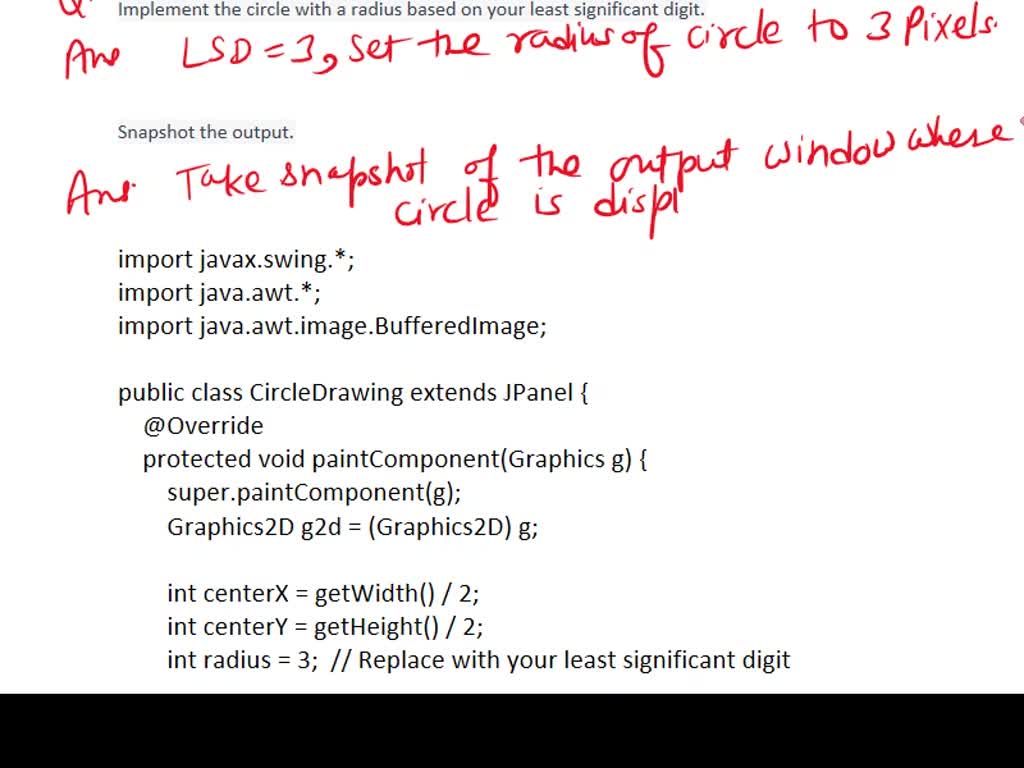 Q.
Implement the circle with a radius based on your least significant digit.
Ans LSD = 3, Set the radius of circle to 3 Pixels.
Snapshot the output.
Ans. Take snapshot of the output window where
circle is displ
import javax.swing.*;
import java.awt.*;
import java.awt.image.BufferedImage;
public class CircleDrawing extends JPanel {
@Override
protected void paintComponent(Graphics g) {
super.paintComponent(g);
Graphics2D g2d = (Graphics2D) g;
int centerX = getWidth() / 2;
int centerY = getHeight() / 2;
int radius = 3; // Replace with your least significant digit